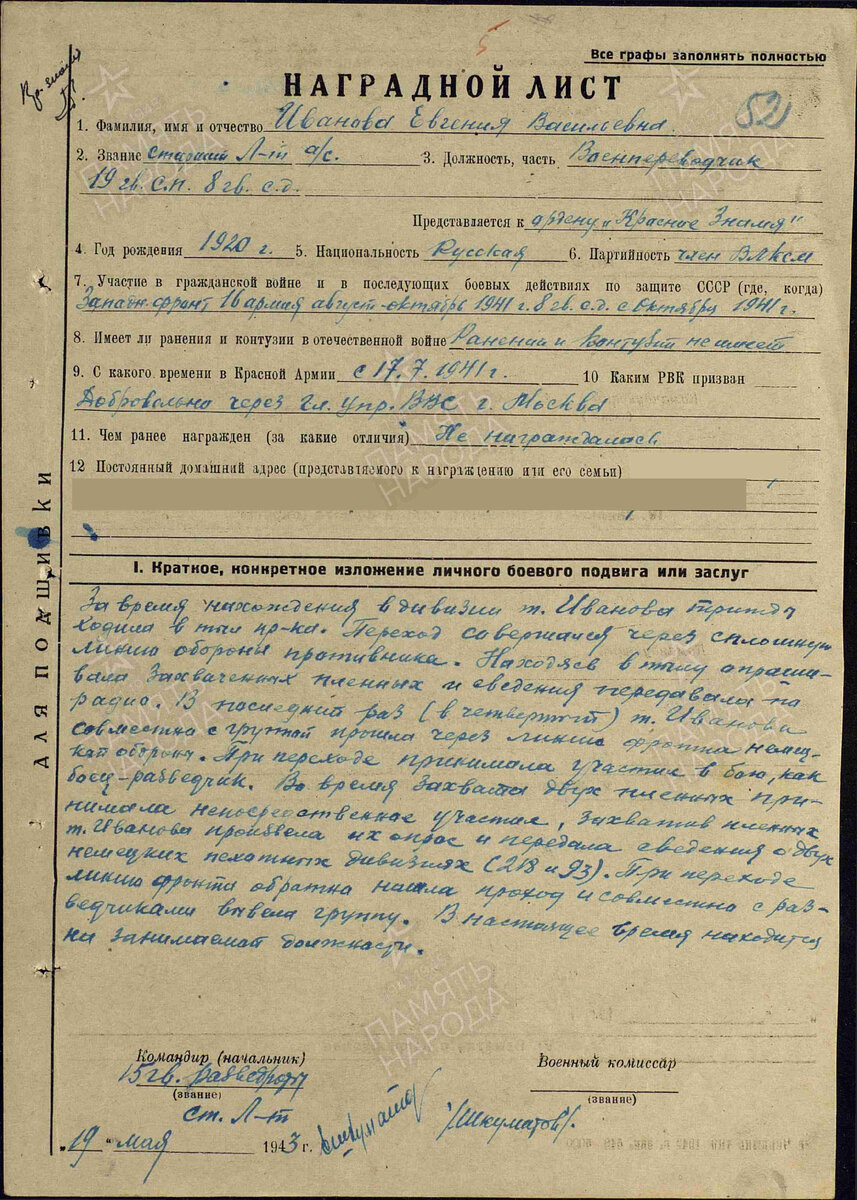 5
Все графы заполнять полностью
НАГРАДНОЙ ЛИСТ
52
1. Фамилия, имя и отчество Иванова Евгения Васильевна
2. Звание старший Л-т а/с. 3. Должность, часть Военпереводчик
19 гв. с.п. 8 гв. с.д.
Представляется к ордену „Красное Знамя"
4. Год рождения 1920 г. 5. Национальность Русская 6. Партийность член ВЛКСМ
7. Участие в гражданской войне и в последующих боевых действиях по защите СССР (где, когда)
Западн. фронт 16 армия август-октябрь 1941 г. 8 гв. с.д. с октября 1941 г.
8. Имеет ли ранения и контузии в отечественной войне Ранений и контузий не имеет
9. С какого времени в Красной Армии с 17.7.1941 г. 10 Каким РВК призван
Добровольно через Гл. упр. ВВС г. Москва
11. Чем ранее награжден (за какие отличия) Не награждалась
12 Постоянный домашний адрес (представляемого к награждению или его семьи)
ДЛЯ ПОДШИВКИ
I. Краткое, конкретное изложение личного боевого подвига или заслуг
За время нахождения в дивизии т. Иванова трижды
ходила в тыл пр-ка. Переход совершался через сплошную
линию обороны противника. Находясь в тылу опраши-
вала захваченных пленных и сведения передавала по
радио. В последний раз (в четвертый) т. Иванова
совместно с группой прошла через линию фронта немец-
кой обороны. При переходе принимала участие в бою, как
боец-разведчик. Во время захвата двух пленных при-
нимала непосредственное участие, захватив пленных
т. Иванова произвела их опрос и передала сведения о двух
немецких пехотных дивизиях (218 и 93). При переходе
линию фронта обратно нашла проход и совместно с раз-
ведчиками вывела группу. В настоящее время находится
на занимаемой должности.
Командир (начальник)
15 гв. разведроты
(звание)
ст. Л-т
Военный комиссар
(звание)
/Шкуматов/.
„19" мая 1943 г.
ПАМЯТЬ НАРОДА